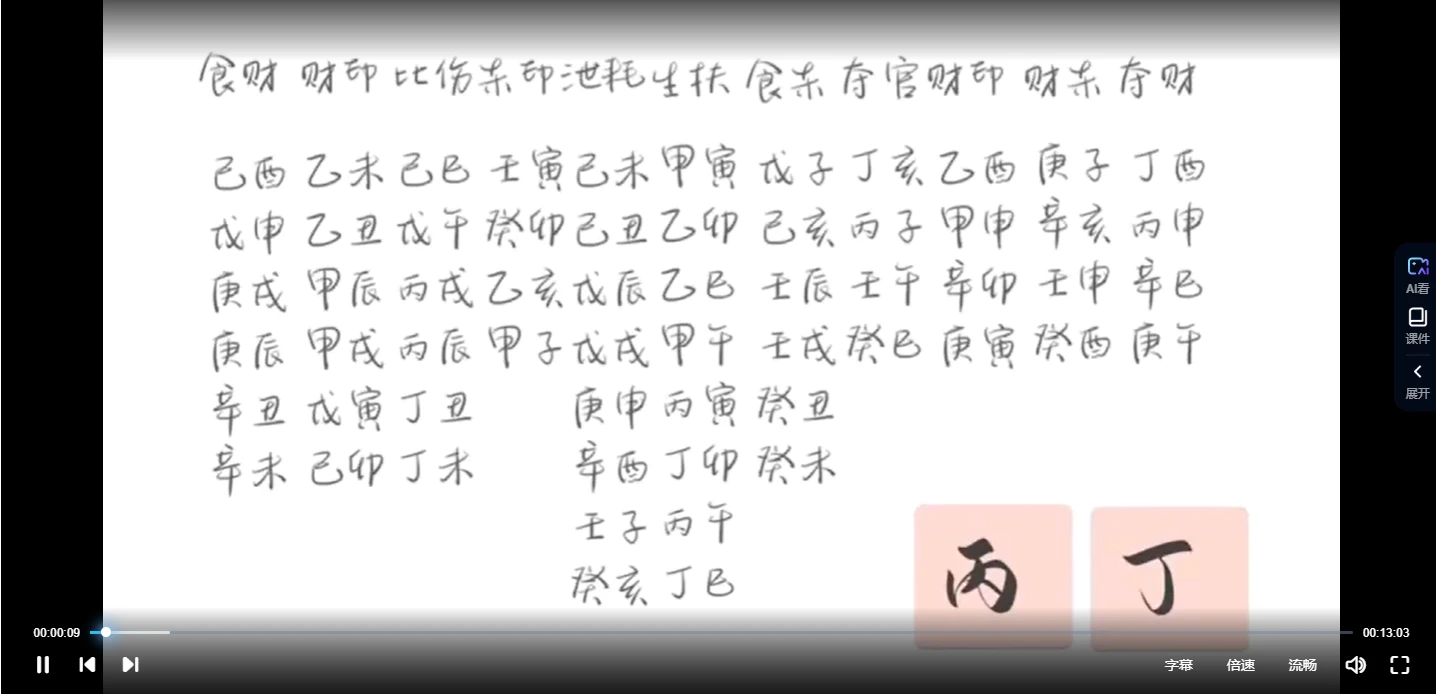 食财 财印 比伤杀印泄耗生扶 食杀 夺官财印 财杀 夺财
己酉 乙未 己巳 壬寅 己未 甲寅 戊子 丁亥 乙酉 庚子 丁酉
戊申 乙丑 戊午 癸卯 己丑 乙卯 己亥 丙子 甲申 辛亥 丙申
庚戌 甲辰 丙戌 乙亥 戊辰 乙巳 壬辰 壬午 辛卯 壬申 辛巳
庚辰 甲戌 丙辰 甲子 戊戌 甲午 壬戌 癸巳 庚寅 癸酉 庚午
辛丑 戊寅 丁丑 庚申 丙寅 癸丑
辛未 己卯 丁未 辛酉 丁卯 癸未
壬子 丙午
癸亥 丁巳
丙 丁
AI看
课件
展开
00:00:09 00:13:03
字幕 倍速 流畅